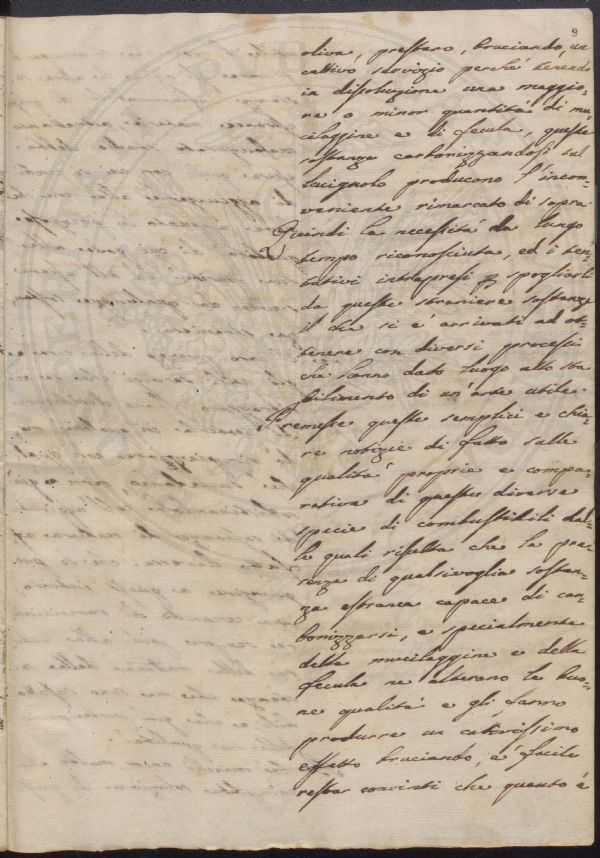 9
oliva, prestaro, bruciando, un
cattivo servizio perchè tenendo
in dissoluzione una maggio,
re o minor quantità di mu,
cilaggine e di fecula, queste
sostanze carbonizzandosi sul
lucignolo producono l'incon,
veniente rimarcato di sopra
Quindi la necessità da lungo
tempo riconosciuta, ed i ten,
tativi intrapresi p spogliarli
da queste straniere sostanze
il che si è arrivati ad ot,
tenere con diversi processi
che hanno dato luogo allo sta
bilimento di un'arte utile
Premesse queste semplici e chia,
re notizie di fatto sulle
qualità proprie e compa,
rative di queste diverse
specie di combustibili dal,
le quali risulta che la pre,
senza di qualsivoglia sostan,
za estranea capace di car,
bonizzarsi, e specialmente
della mucilaggine e della
fecula ne alterano le buo,
ne qualità e gli fanno
produrre un cattivissimo
effetto bruciando, è facile
restar convinti che quanto è